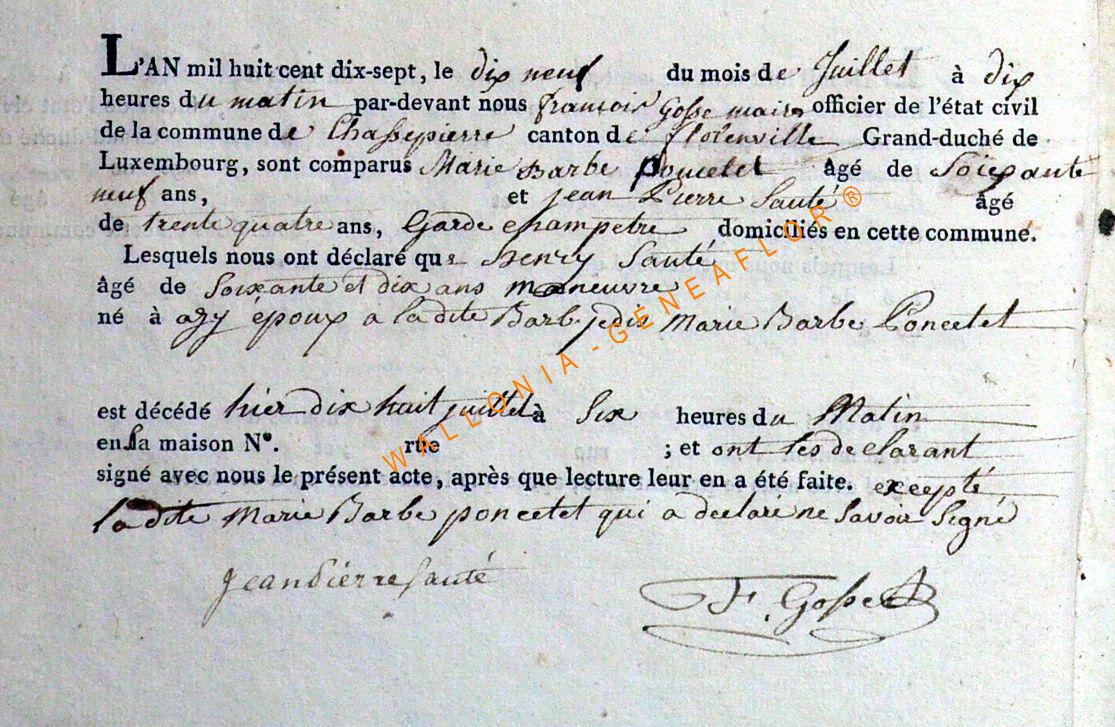 L'AN mil huit cent dix-sept, le dix neuf du mois de Juillet à dix
heures du matin par-devant nous francois Gosse maire officier de l'état civil
de la commune de Chassepierre canton de florenville Grand-duché de
Luxembourg, sont comparus Marie Barbe Poncelet âgé de Soixante
neuf ans, et jean Pierre Sauté âgé
de trente quatre ans, Garde champetre domiciliés en cette commune.
Lesquels nous ont déclaré que henry Sauté
âgé de Soixante et dix ans maneuvre
né à azy époux a la dite Barb. je dis Marie Barbe Poncelet
est décédé hier dix huit juillet à Six heures du Matin
en sa maison N°. rue ; et ont les declarant
signé avec nous le présent acte, après que lecture leur en a été faite. excepté
la dite Marie Barbe poncelet qui a declaré ne Savoir Signé
jean Piérre Sauté
F. Gosse
WALLONIA - GENEAFLOR ®